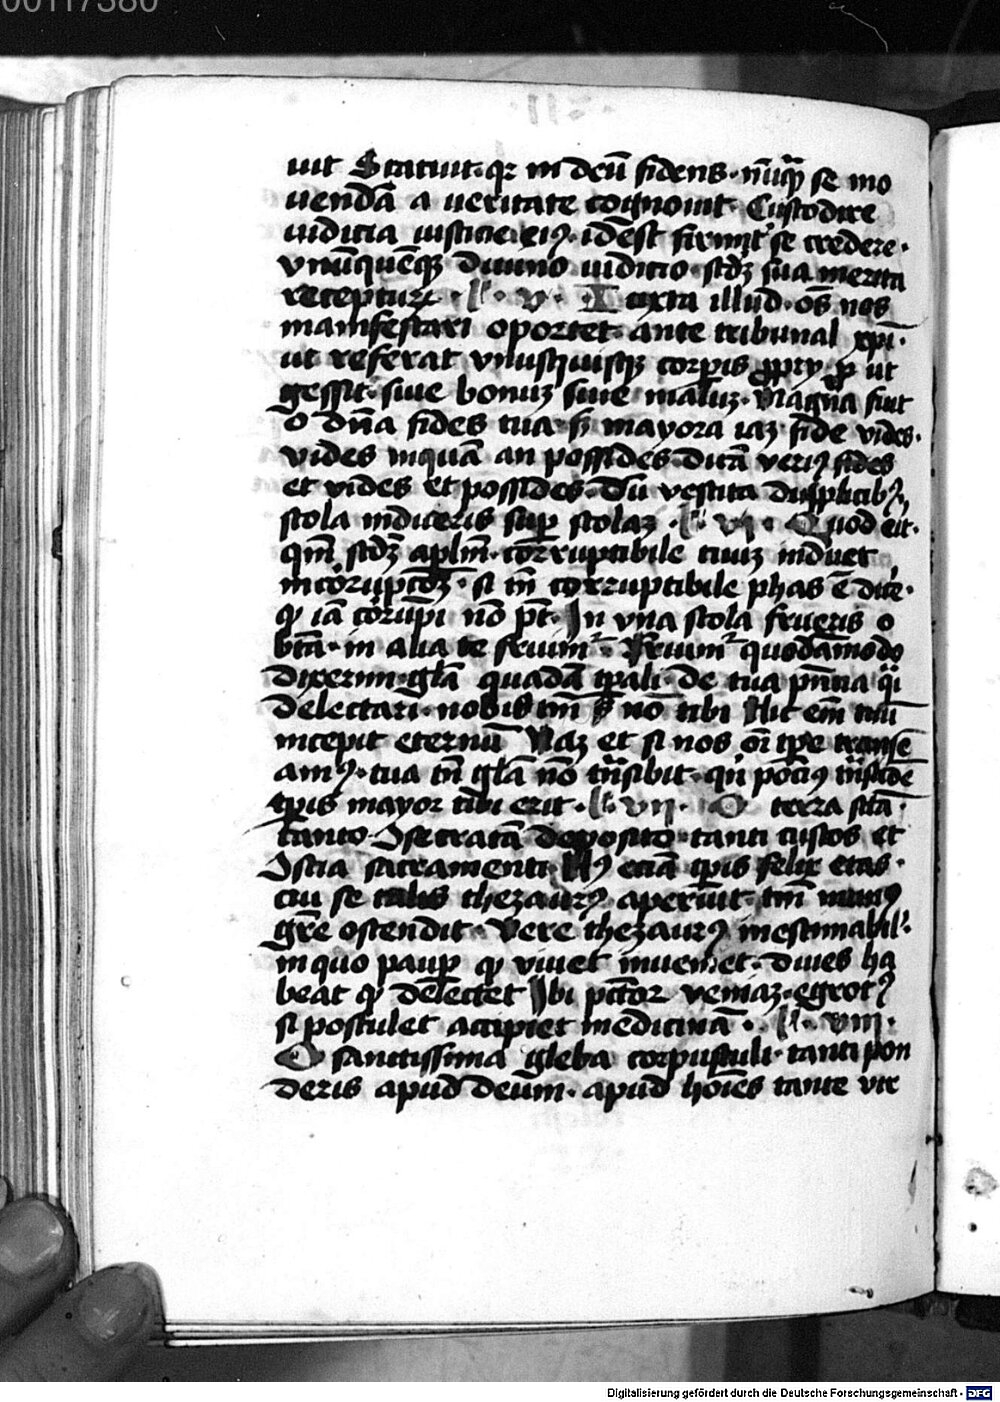 00117380
uit Statuit · qr in deū fidens · nūq̄ȝ se mo
uendā a ueritate cognouit · Custodire
iudicia iusticie eiꝰ · idest firmit' se credere ·
vnūquēqȝ diuino iudicio · scdȝ sua merita
recepturū · ll · v · Iuxta illud · oēs nos
manifestari oportet · ante tribunal xp̄i ·
ut referat vnusquisqȝ corpis ꝓpry ꝓ ut
gessit · siue bonuȝ siue maluȝ · Magna fuit
O dn̄a fides tua · sȝ mayora iaȝ fide vides ·
vides inquā an possides · dicā veriꝰ fides
et vides et possides · Tu vestita duplicibꝰ
stola indueris sup stolaȝ · ll · vj · Quod eīt ·
qm̄ scdȝ apl̄m · corruptibile tuuȝ induet
incoruptōȝ · si tn̄ corruptibile phas ē dice ·
qȝ iā corūpi nō pt̄ · In una stola frueris o
btā · in alia te fruimr · Fruimr quodāmodo
dixerim · gl̄a quadā tp̄ali · de tua pn̄tia q̄i
delectari · nobis tn̄ sȝ nō tibi Hic em̄ tuū
incepit eternū Naȝ et si nos oī tp̄e transe
amꝰ · tua tn̄ gl̄a nō tn̄sibit · qn̄ pociꝰ
tp̄is mayor tibi erit · ll · vii · O terra sctā ·
tanto · Isecratā deposito · tanti custos et
Iscia sacramenti · Hꝰ eciā tp̄is felix etas ·
cui se talis thezaurꝰ aperuit · tn̄ munꝰ
gr̄e ostendit · Vere thezaurꝰ inestimabil' ·
in quo paup qȝ viuet inueniet · diues ha
beat qȝ delectet Ibi pctōr veniaȝ · egrotꝰ
si postulet accipiet medicinā · ll · viii ·
O sanctissima gleba corpusculi · tanti pon
deris apud deum · apud hoīes tante vir
Digitalisierung gefördert durch die Deutsche Forschungsgemeinschaft · DFG